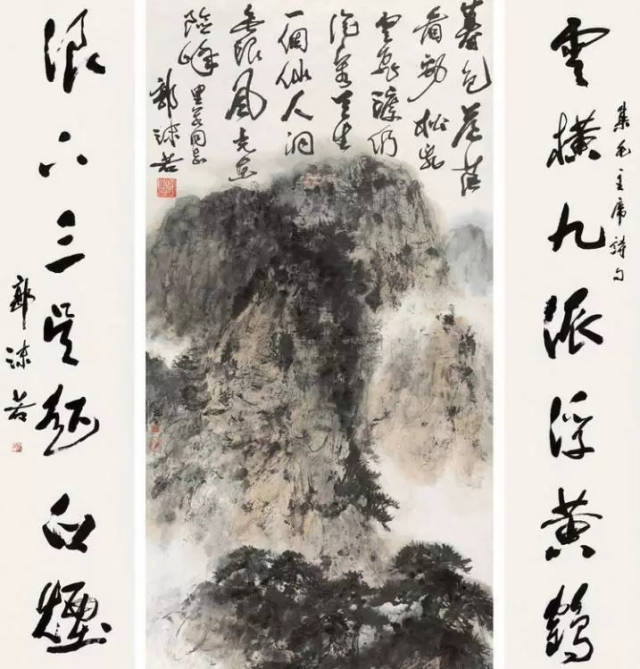 集毛主席詩句
雲橫九派浮黃鶴
暮色蒼茫
看勁松亂
雲飛渡仍
從容天生
一個仙人洞
無限風光在
險峰
同志
郭沫若
浪下三吳起白煙
郭沫若